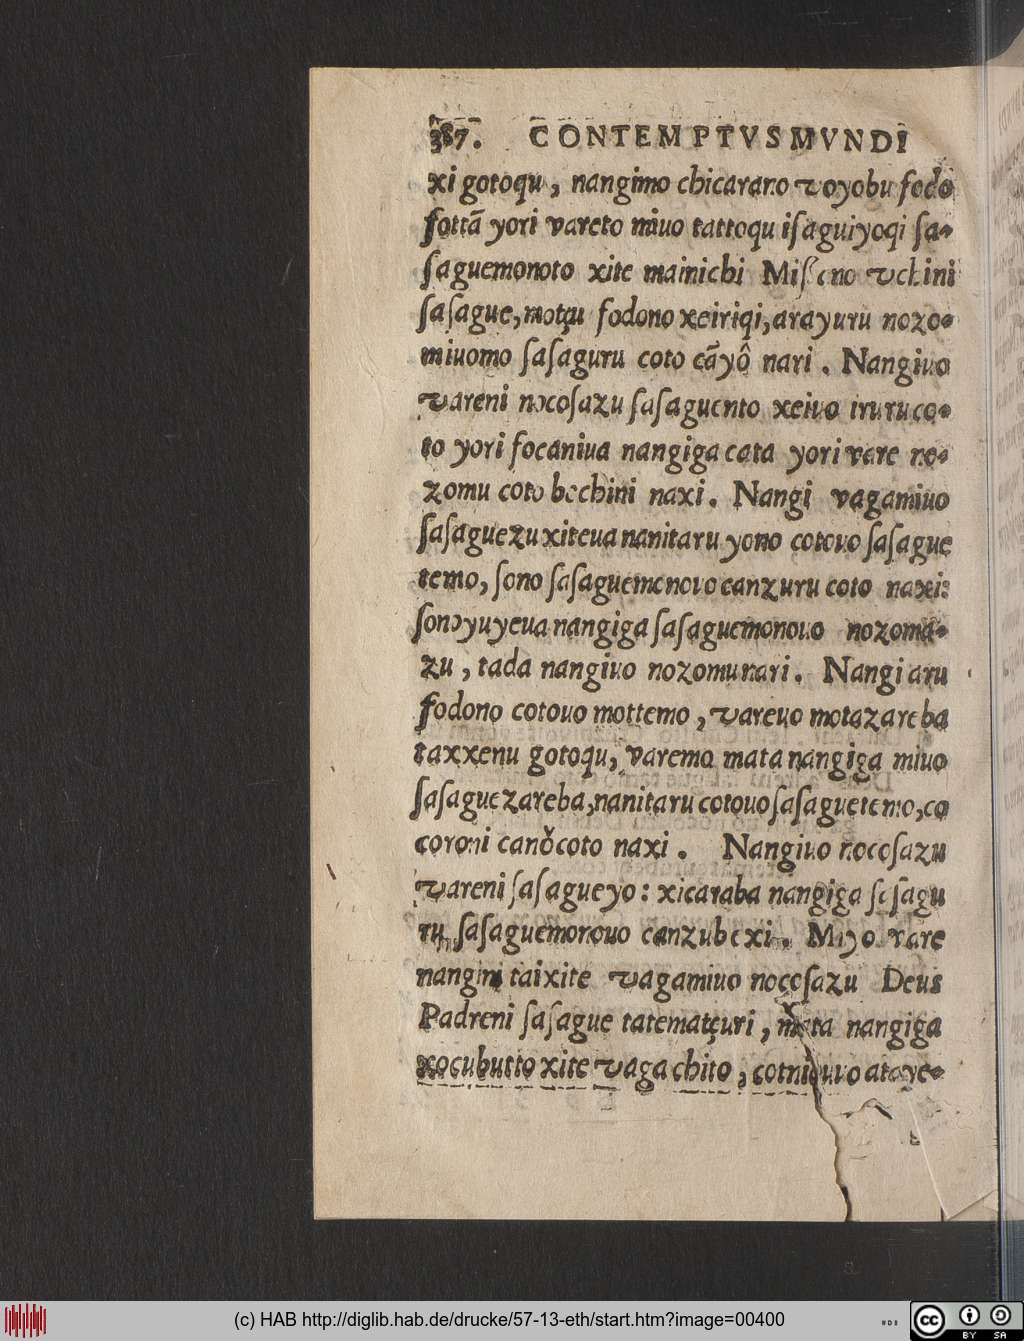 387. CONTEMPTVS MVNDI
xi gotoqu, nangimo chicarano voyobu fodo
fottã yori vareto miuo tattoqu iſaguiyoqi ſa-
ſaguemonoto xite mainichi Miſſano vchini
ſaſague, motçu fodono xeiriqi, arayuru nozo-
miuomo ſaſaguru coto cãyô nari. Nangiuo
vareni nocoſazu ſaſaguento xeiuo iruru co-
to yori focaniua nangiga cata yori vare no-
zomu coto bechini naxi. Nangi vagamiuo
ſaſaguezu xiteua nanitaru yono cotouo ſaſague
temo, ſono ſaſaguemonouo canzuru coto naxi:
ſonoyuyeua nangiga ſaſaguemonouo nozoma-
zu, tada nangiuo nozomu nari. Nangi aru
fodono cotouo mottemo, vareuo motazareba
taxxenu gotoqu, varemo mata nangiga miuo
ſaſaguezareba, nanitaru cotouo ſaſaguetemo, co
coroni canŏ coto naxi. Nangiuo nocoſazu
vareni ſaſagueyo: xicaraba nangiga ſaſagu
ru ſaſaguemonouo canzubexi. Miyo vare
nangini taixite vagamiuo nocoſazu Deus
Padreni ſaſague tatematçuri, mata nangiga
xocubutto xite vaga chito, cotniquuo ataye-
(c) HAB http://diglib.hab.de/drucke/57-13-eth/start.htm?image=00400
cc BY SA